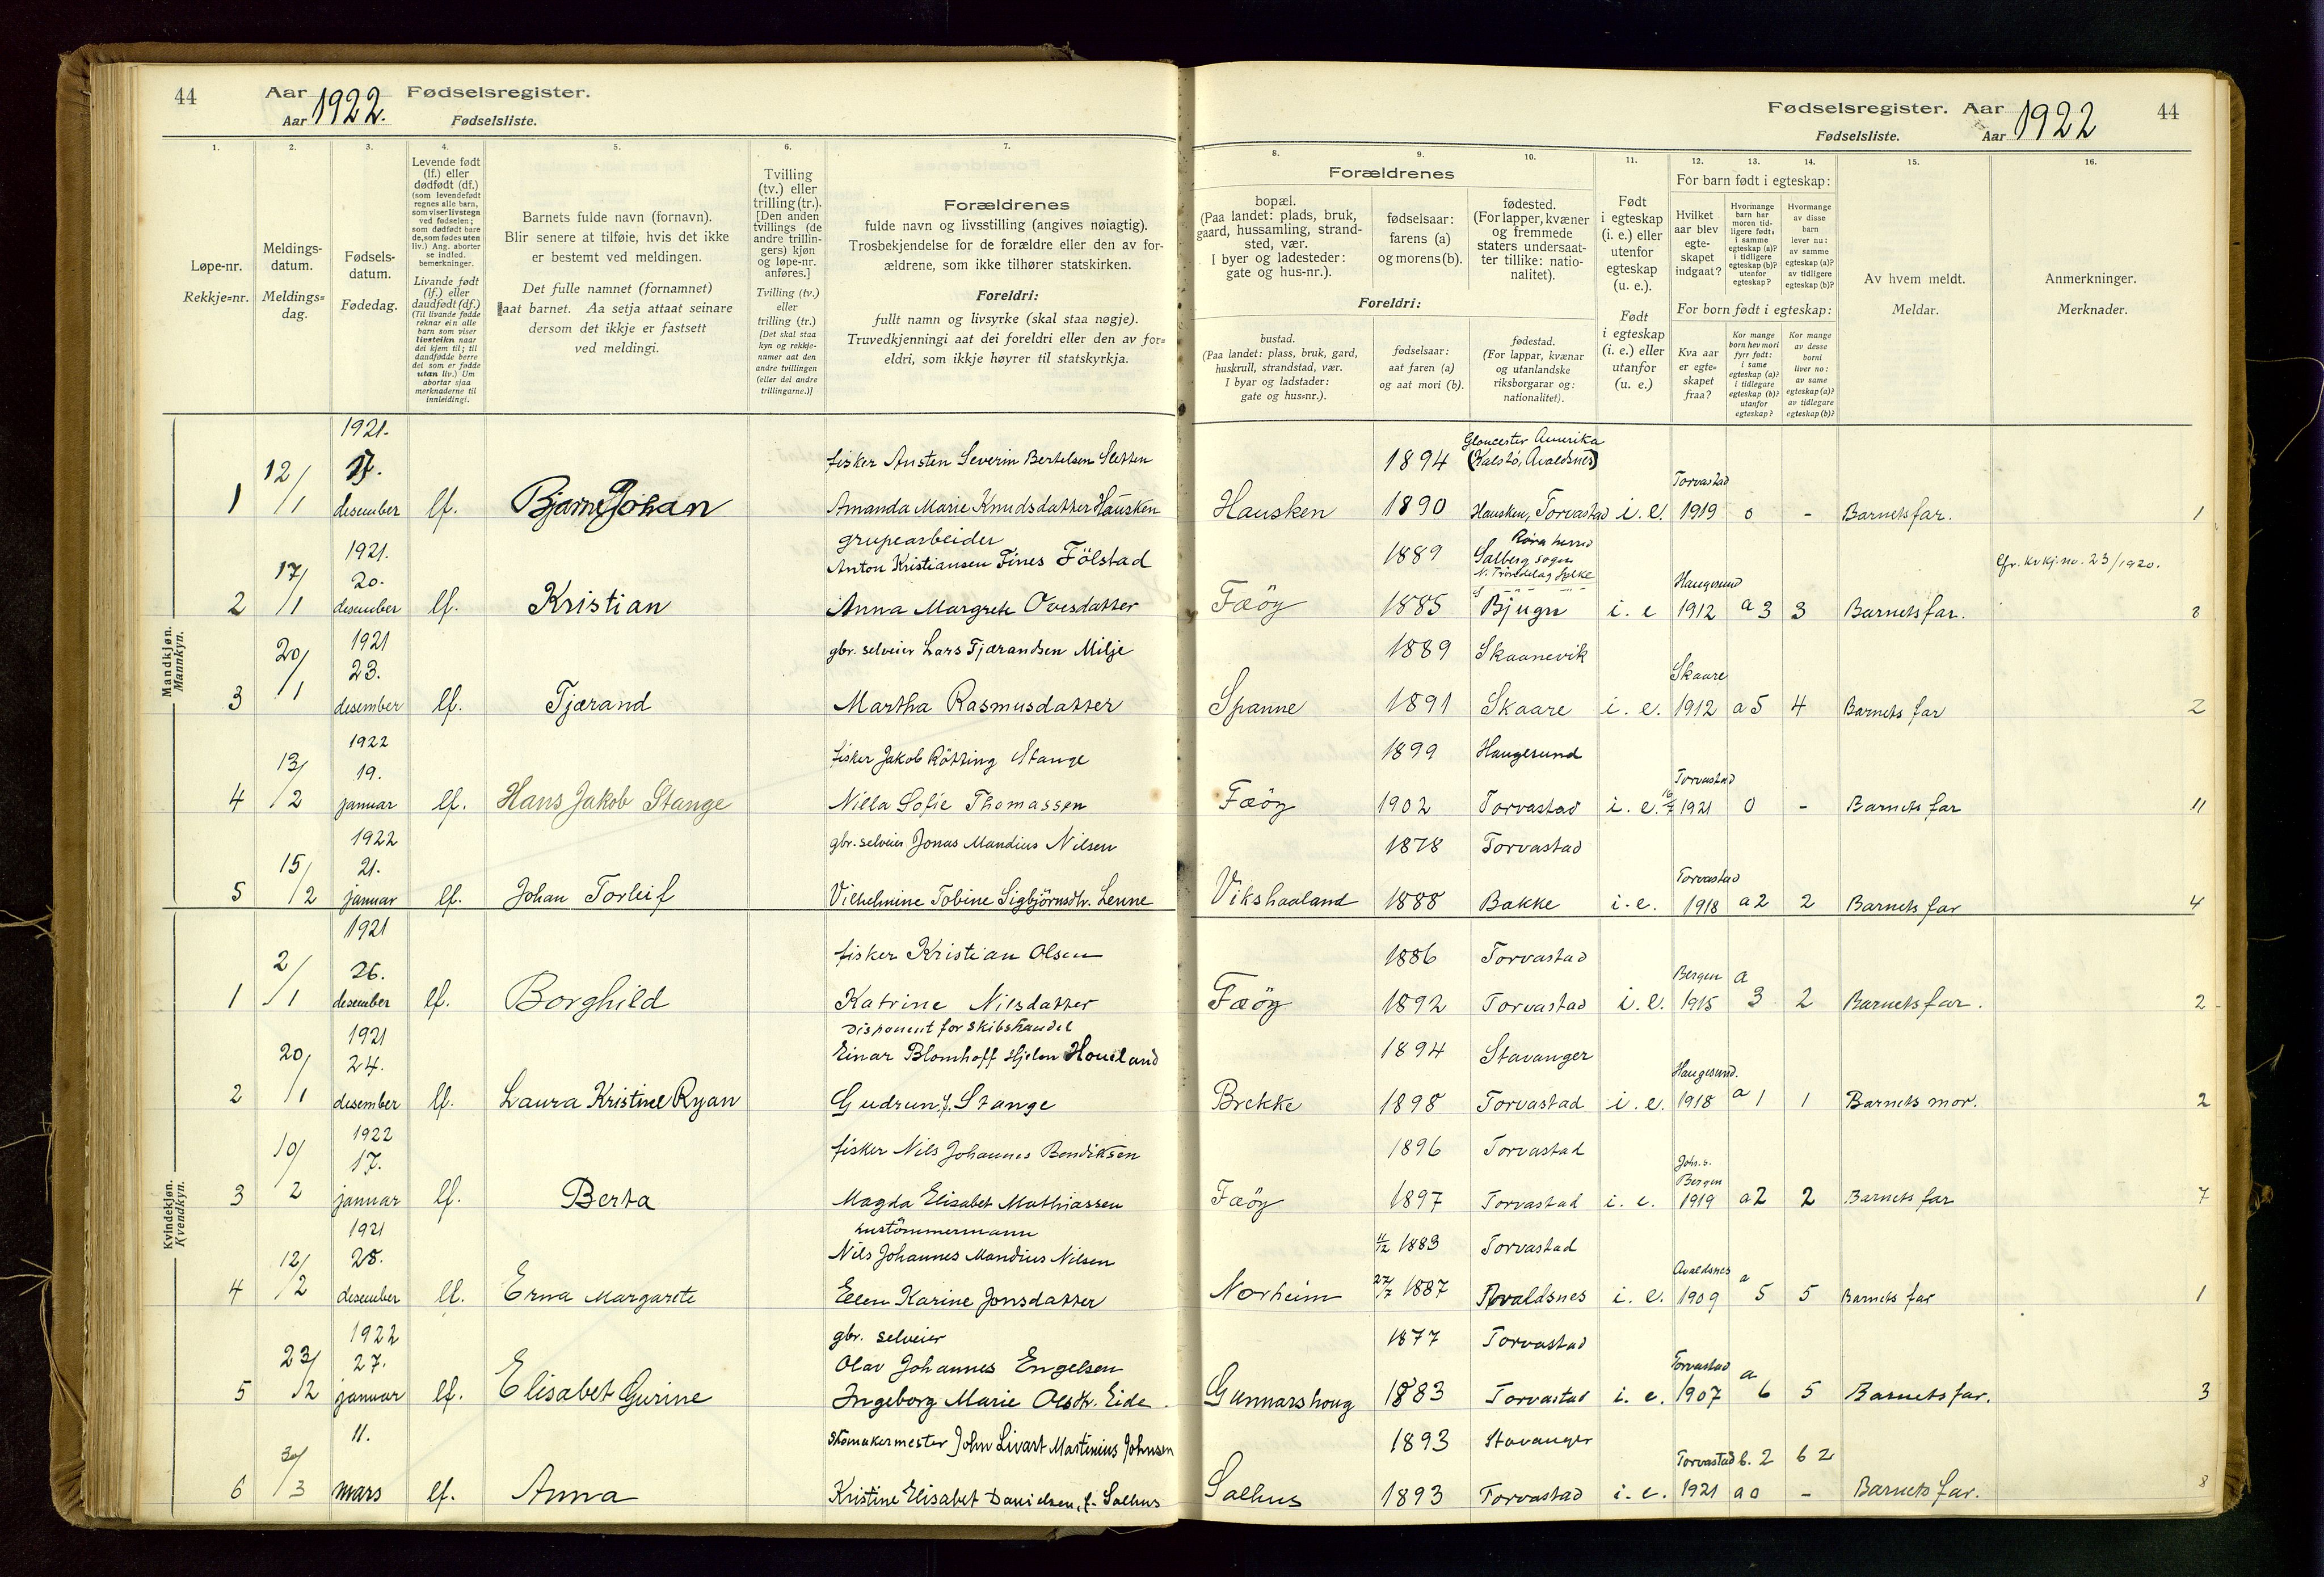 44
Aar 1922. Fødselsregister.
Aar Fødselsliste.
1.
2.
3.
4.
5.
6.
7.
Løpe-nr.
Rekkje=nr.
Meldings-
datum.
Meldings=
dag.
Fødsels-
datum.
Fødedag.
Levende født
(lf.) eller
dødfødt (df.)
(som levendefødt
regnes alle barn,
som viser livstegn
ved fødselen;
som dødfødt bare
de, som fødes uten
liv.) Ang. aborter
se indled.
bemerkninger.
Livande født
(lf.) eller
daudfødt (df.)
(Til livande fødde
reknar ein alle
barn som viser
livsteikn naar
dei kjem til; til
daudfødde berre
dei som er fødde
utan liv.) Um
abortar sjaa
merknaderne til
innleidingi.
Barnets fulde navn (fornavn).
Blir senere at tilføie, hvis det ikke
er bestemt ved meldingen.
Det fulle namnet (fornamnet)
aat barnet. Aa setja attaat seinare
dersom det ikkje er fastsett
ved meldingi.
Tvilling
(tv.) eller
trilling (tr.).
[Den anden
tvillings (de
andre trillin-
gers) kjøn
og løpe-nr.
anføres.]
Tvilling (tv.)
eller
trilling (tr.)
[Det skal staa
kyn og rekkje-
numer aat den
andre tvillingen
(eller dei andre
trillingarne.)]
Forældrenes
fulde navn og livsstilling (angives nøiagtig).
Trosbekjendelse for de forældre eller den av for-
ældrene, som ikke tilhører statskirken.
Foreldri:
fullt namn og livsyrke (skal staa nøgje).
Truvedkjenningi aat dei foreldri eller den av for=
eldri, som ikkje høyrer til statskyrkja.
Mandkjøn.
Mannkyn.
1921.
12/1 17.
fisker Austen Severin Bertelsen Sletten
1 desember lf. Bjarne Johan Amanda Marie Knudsdatter Hausken
1921. grupearbeider
17/1 20. Anton Kristiansen Fines Fölstad
2 desember lf. Kristian Anna Margrete Ovesdatter
1921 gbr. selveier Lars Tjærandsen Milje
20/1 23.
3 desember lf. Tjærand Martha Rasmusdatter
1922
13/2 19. fisker Jakob Rötting Stange
4 januar lf. Hans Jakob Stange Nilla Sofie Thomassen
1922 gbr. selveier Jonas Mandius Nilsen
15/2 21.
5 januar lf. Johan Torleif Vilhelmine Tobine Sigbjörnsdtr. Lenne
Kvindekjøn.
Kvendkyn.
1921
2/1 26. fisker Kristian Olsen
1 desember lf. Borghild Katrine Nilsdatter
1921 Disponent for skibshandel
20/1 24. Einar Blomhoff Hjelm Houeland
2 desember lf. Laura Kristine Ryan Gudrun f. Stange
1922 fisker Nils Johannes Bendiksen
10/2 17.
3 januar lf. Berta Magda Elisabet Mathiassen
1921 hustömmermann
12/2 28. Nils Johannes Mandius Nilsen
4 desember lf. Erna Margarete Ellen Karine Jonsdatter
1922 gbr. selveier
23/2 27. Olav Johannes Engelsen
5 januar lf. Elisabet Gurine Ingeborg Marie Olsdtr. Eide
30/3 11. skomakermester John Sivart Martinius Johnsen
6 mars lf. Anna Kristine Elisabet Danielsen, f. Salhus
Fødselsregister. Aar 1922 44
Fødselsliste. Aar
8.
9.
10.
11.
12.
13.
14.
15.
16.
Forældrenes
bopæl.
(Paa landet: plads, bruk,
gaard, hussamling, strand-
sted, vær.
I byer og ladesteder:
gate og hus-nr.).
fødselsaar:
farens (a)
og morens (b).
fødested.
(For lapper, kvæner
og fremmede
staters undersaat-
ter tillike: natio-
nalitet).
Foreldri:
bustad.
(Paa landet: plass, bruk, gard,
huskrull, strandstad, vær.
I byar og ladstader:
gate og hus=nr.).
fødselsaar:
aat faren (a)
og aat mori (b).
fødestad.
(For lappar, kvænar
og utanlandske
riksborgarar og:
nationalitet).
Født
i egteskap
(i. e.) eller
utenfor
egteskap
(u. e.).
Født
i egteskap
(i. e.) eller
utanfor
(u. e.)
For barn født i egteskap:
Hvilket
aar blev
egte-
skapet
indgaat?
Hvormange
barn har
moren tid-
ligere født:
i samme
egteskap (a)?
i tidligere
egteskap (b)?
utenfor
egteskap?
Hvormange
av disse
barn
lever nu:
av samme
egteskap (a)?
av tidligere
egteskap (b)?
For born født i egteskap:
Kva aar
er egte=
skapet
fraa?
Kor mange
born hev mori
fyrr født:
i same
egteskap (a)?
i tidlegare
egteskap (b)?
utanfor
egteskap?
Kor mange
av desse
borni
liver no:
av same
egteskap (a)?
av tidlegare
egteskap (b)?
Av hvem meldt.
Meldar.
Anmerkninger.
Merknader.
Gloucester Amerika
1894 (Kalstø, Avaldsnes)
Torvastad
Hausken 1890 Hausken, Torvastad i. e. 1919 0 - Barnets far. 1
Röra herred
1889 Salberg sogn
N. Trøndelag fylke
cfr. kvkj. no. 23/1920.
Haugesund
Fæöy 1885 Bjugn i. e 1912 a 3 3 Barnets far.
1889 Skaanevik
Skaare
Spanne 1891 Skaare i. e. 1912 a 5 4 Barnets far 2
1899 Haugesund
Torvastad
Fæöy 1902 Torvastad i. e. 16/7 1921 0 - Barnets far 11
1878 Torvastad
Torvastad
Vikshaaland 1888 Bakke i. e. 1918 a 2 2 Barnets far 4
1886 Torvastad
Bergen a
Fæöy 1892 Torvastad i. e. 1915 3 2 Barnets far. 2
1894 Stavanger
Haugesund.
Brekke 1898 Torvastad i. e. 1918 a 1 1 Barnets mor. 2
1896 Torvastad
Joh. s.
Bergen
Fæöy 1897 Torvastad i. e. 1919 a 2 2 Barnets far 7
11/12 1883 Torvastad
Avaldsnes a
Norheim 27/7 1887 Avaldsnes i. e. 1909 5 5 Barnets far 1
1877 Torvastad
Torvastad a
Gunnarshoug 1883 Torvastad i. e. 1907 6 5 Barnets far. 3
1893 Stavanger
Torvastad b. 2 b 2
Salhus 1893 Torvastad i. e. 1921 a 0 - Barnets far. 8